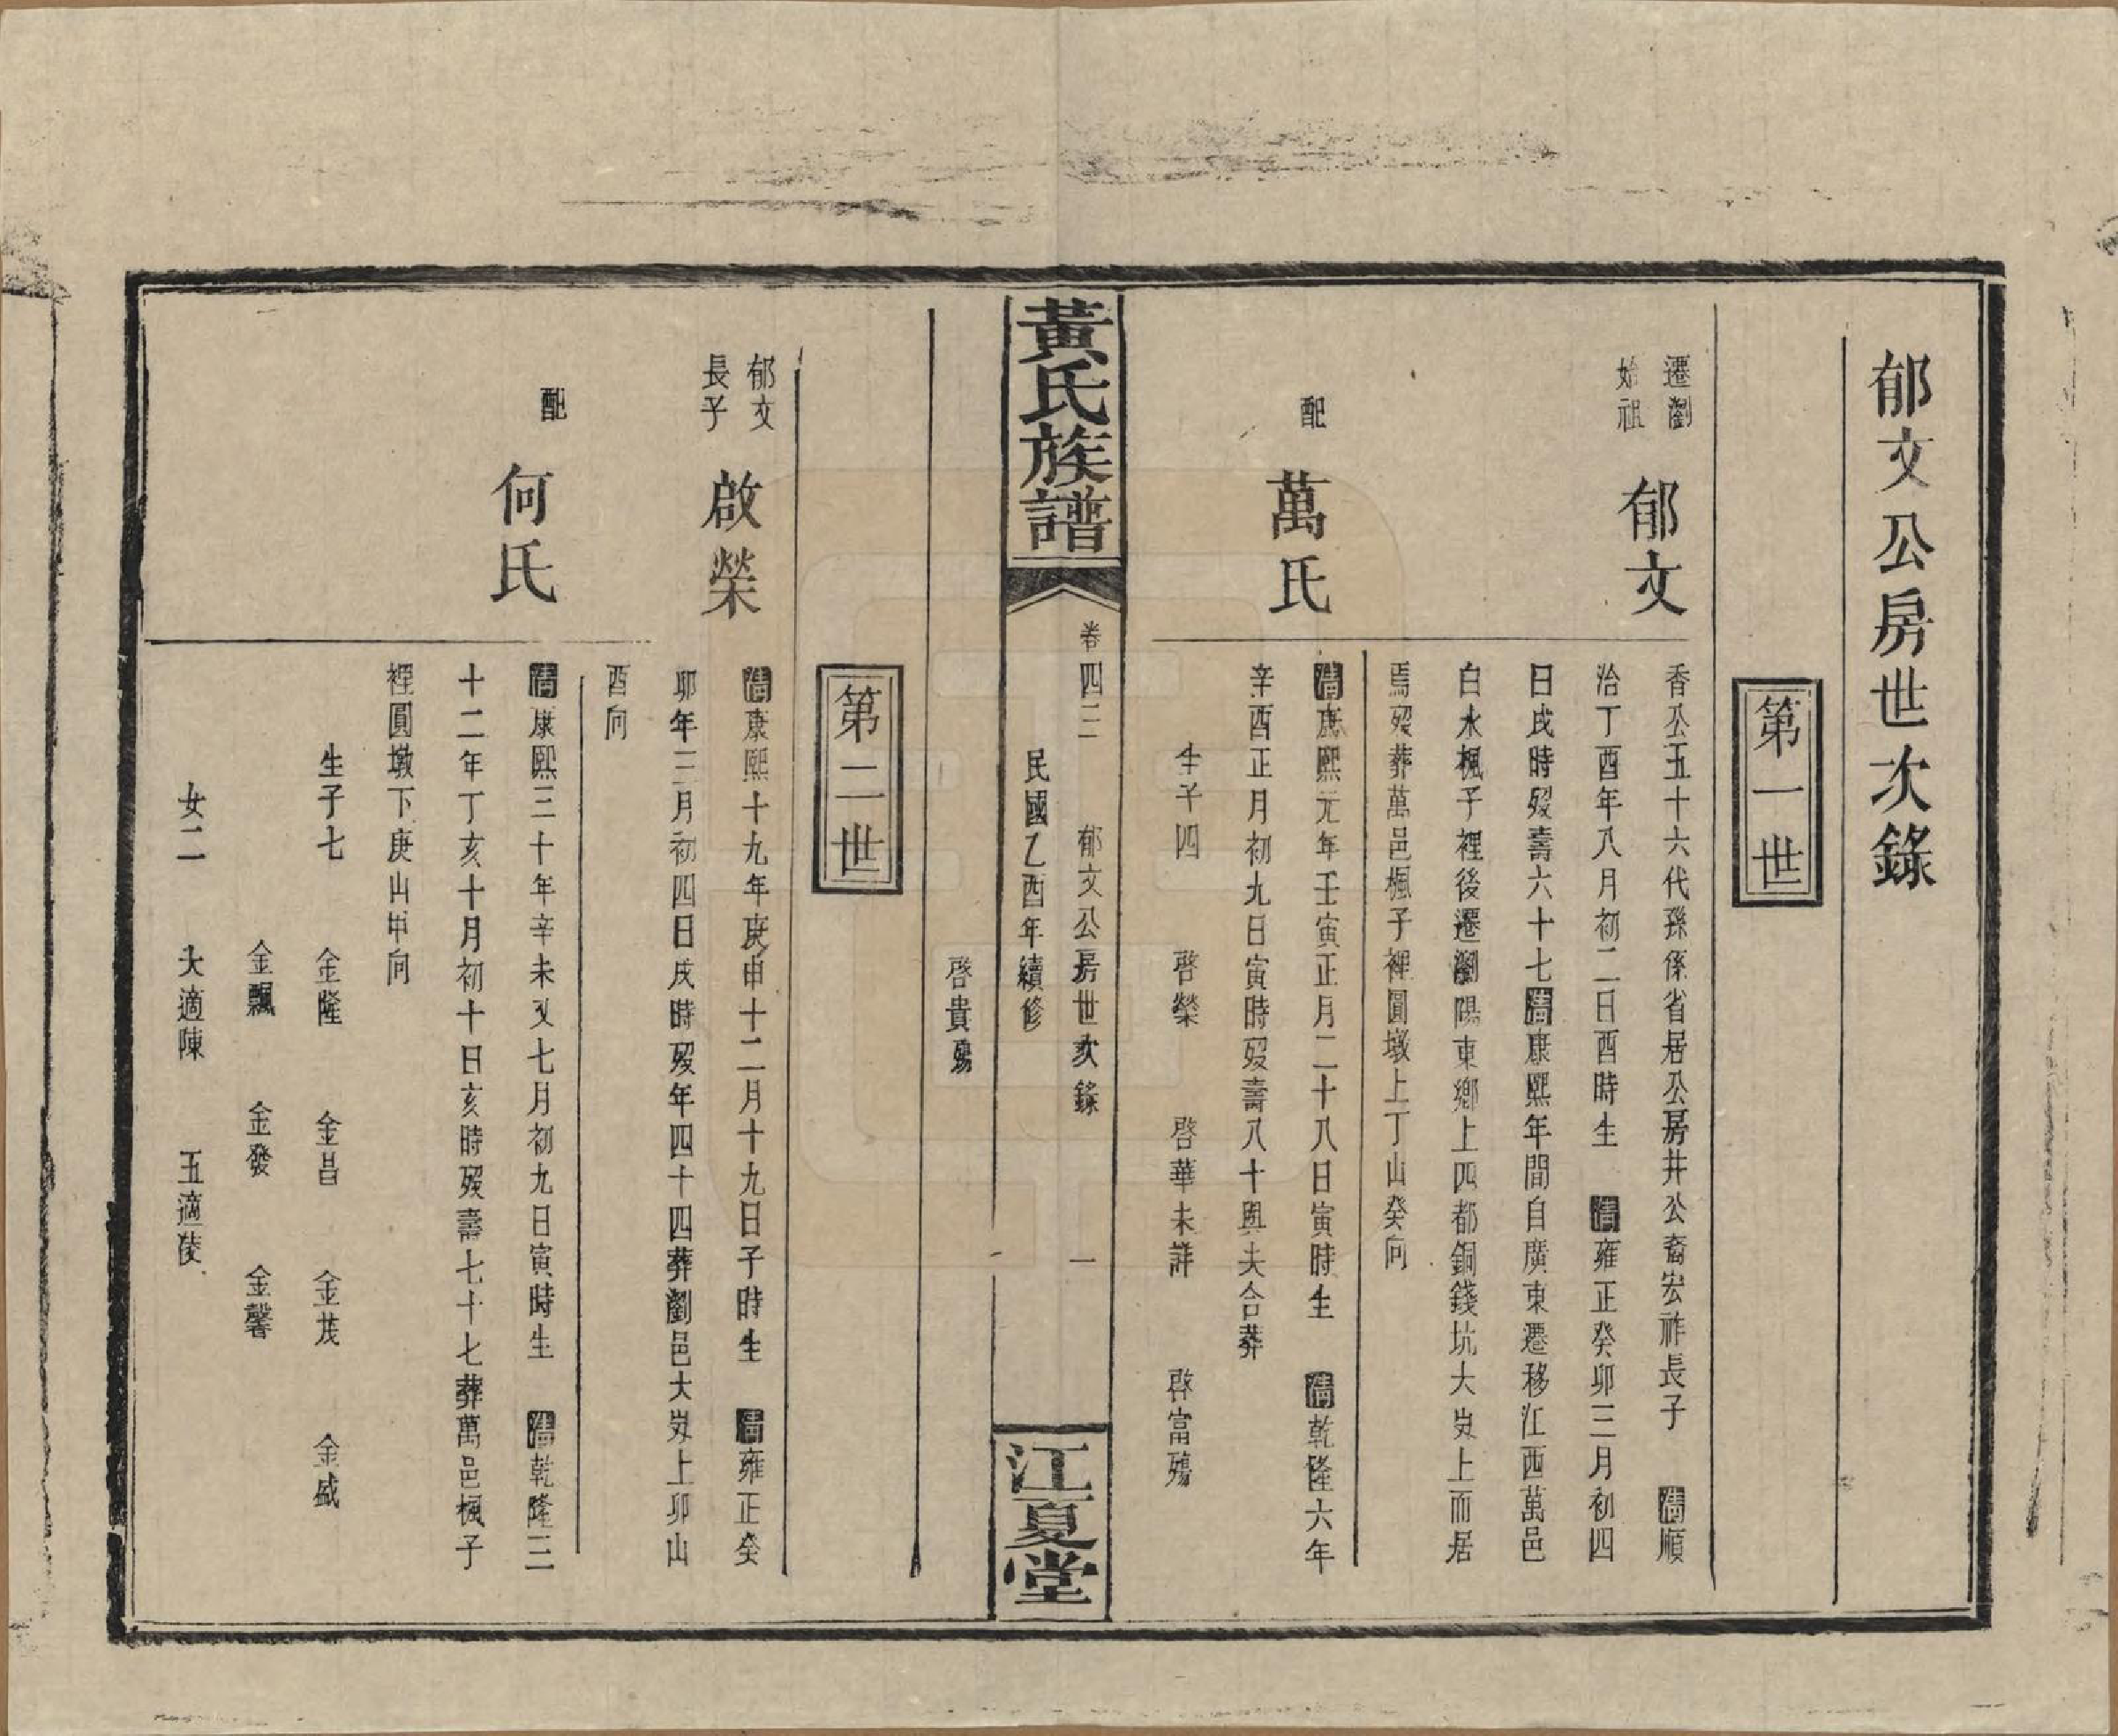 郁文公房世次錄
第一世
遷瀏
始祖
郁文
香公五十六代孫係省居公房井公裔宏祚長子 清順
治丁酉年八月初二日酉時生 清雍正癸卯三月初四
日戌時歿壽六十七清康熙年間自廣東遷移江西萬邑
白水楓子裡後遷瀏陽東鄉上四都銅錢坑大㘭上而居
焉歿葬萬邑楓子裡圓墩上丁山癸向
配
萬氏
清康熙元年壬寅正月二十八日寅時生 清乾隆六年
辛酉正月初九日寅時歿壽八十與夫合葬
生子四 啓榮 啓華未詳 啓富殤
黃氏族譜
卷四三 郁文公房世次錄 一
民國乙酉年續修
江夏堂
啓貴殤
第二世
郁文
長子
啟榮
清康熙十九年庚申十二月十九日子時生 清雍正癸
卯年三月初四日戌時歿年四十四葬瀏邑大㘭上卯山
酉向
配
何氏
清康熙三十年辛未又七月初九日寅時生 清乾隆三
十二年丁亥十月初十日亥時歿壽七十七葬萬邑楓子
裡圓墩下庚山甲向
生子七 金隆 金昌 金茂 金盛
金飄 金發 金馨
女二 大適陳 五適陵